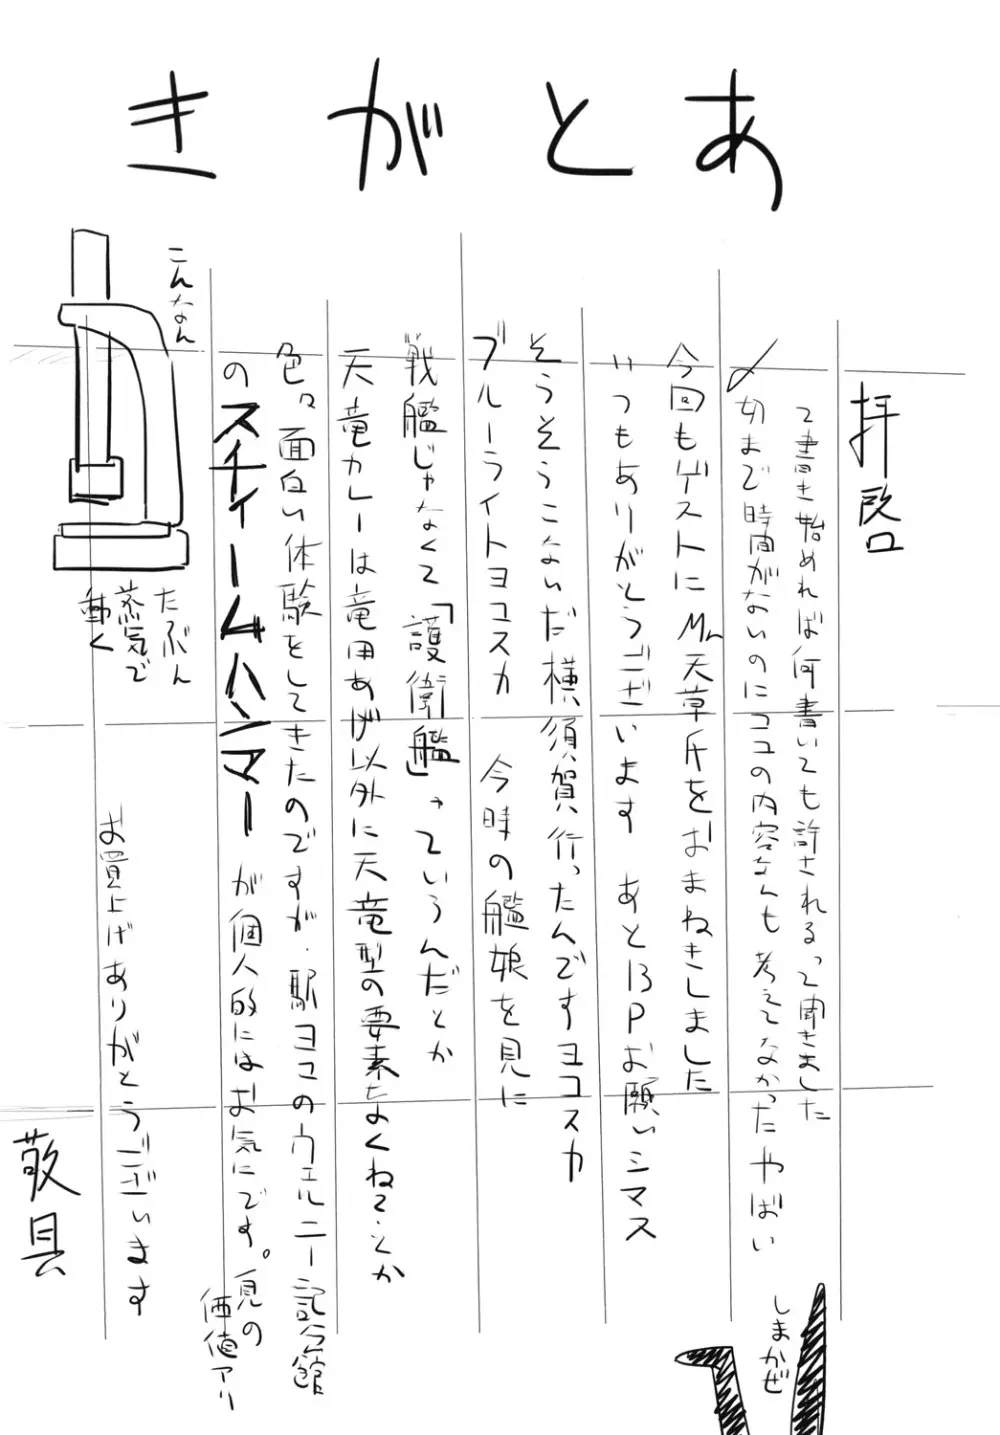 あとがき
拝啓
って書き始めれば何書いても許されるって聞きました
〆切まで時間がないのにココの内容なんも考えてなかったやばい
今回もゲストにMr.天草氏をおまねきしました
いつもありがとうございます あと13Pお願いシマス
そうそうこないだ横須賀行ったんですヨコスカ
ブルーライトヨコスカ 今時の艦娘を見に
戦艦じゃなくて「護衛艦」っていうんだとか
天竜カレーは竜田あげ以外に天竜型の要素なくね?とか
色々面白い体験をしてきたのですが、駅ヨコのヴェルニー記念館
のスチィームハンマーが個人的にはお気にです。見の
価値アリ
こんなん
たぶん
蒸気で
動く
お買上げありがとうございます
敬具
しまかぜ